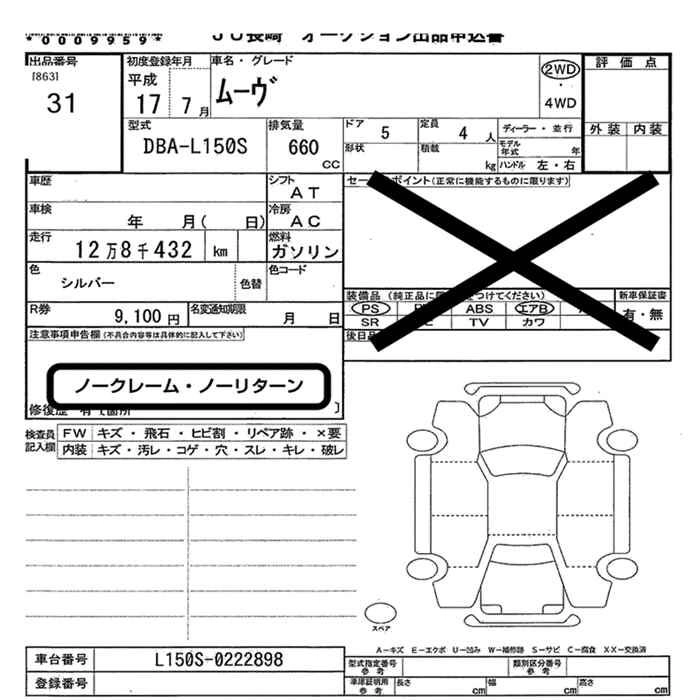 *0009959*
JU長崎 オークション出品申込書
出品番号
[863]
31
初度登録年月
平成
17 7 月
車名・グレード
ムーヴ
2WD
・
4WD
評価点
外装 内装
型式
DBA-L150S
排気量
660
CC
ドア
5
定員
4 人
ディーラー・並行
形状
積載
kg
モデル年式 年
ハンドル 左・右
車歴
シフト
AT
車検
年 月( 日)
冷房
AC
走行
12万8千432 km
燃料
ガソリン
色
シルバー
色替
色コード
R券
9,100 円
名変通知期限
月 日
注意事項申告欄(不具合内容等は具体的に記入して下さい)
ノークレーム・ノーリターン
ポイント(正常に機能するものに限ります)
装備品
PS
ABS
エアB
SR
TV
カワ
新車保証書
有・無
後日品
検査員記入欄
FW キズ・飛石・ヒビ割・リペア跡・×要
内装 キズ・汚レ・コゲ・穴・スレ・キレ・破レ
スペア
A-キズ E-エクボ U-凹み W-補修跡 S-サビ C-腐食 XX-交換済
車台番号
L150S-0222898
登録番号
型式指定番号
参考
類別区分番号
参考
車庫証明用
参考
長さ cm
幅 cm
高さ cm